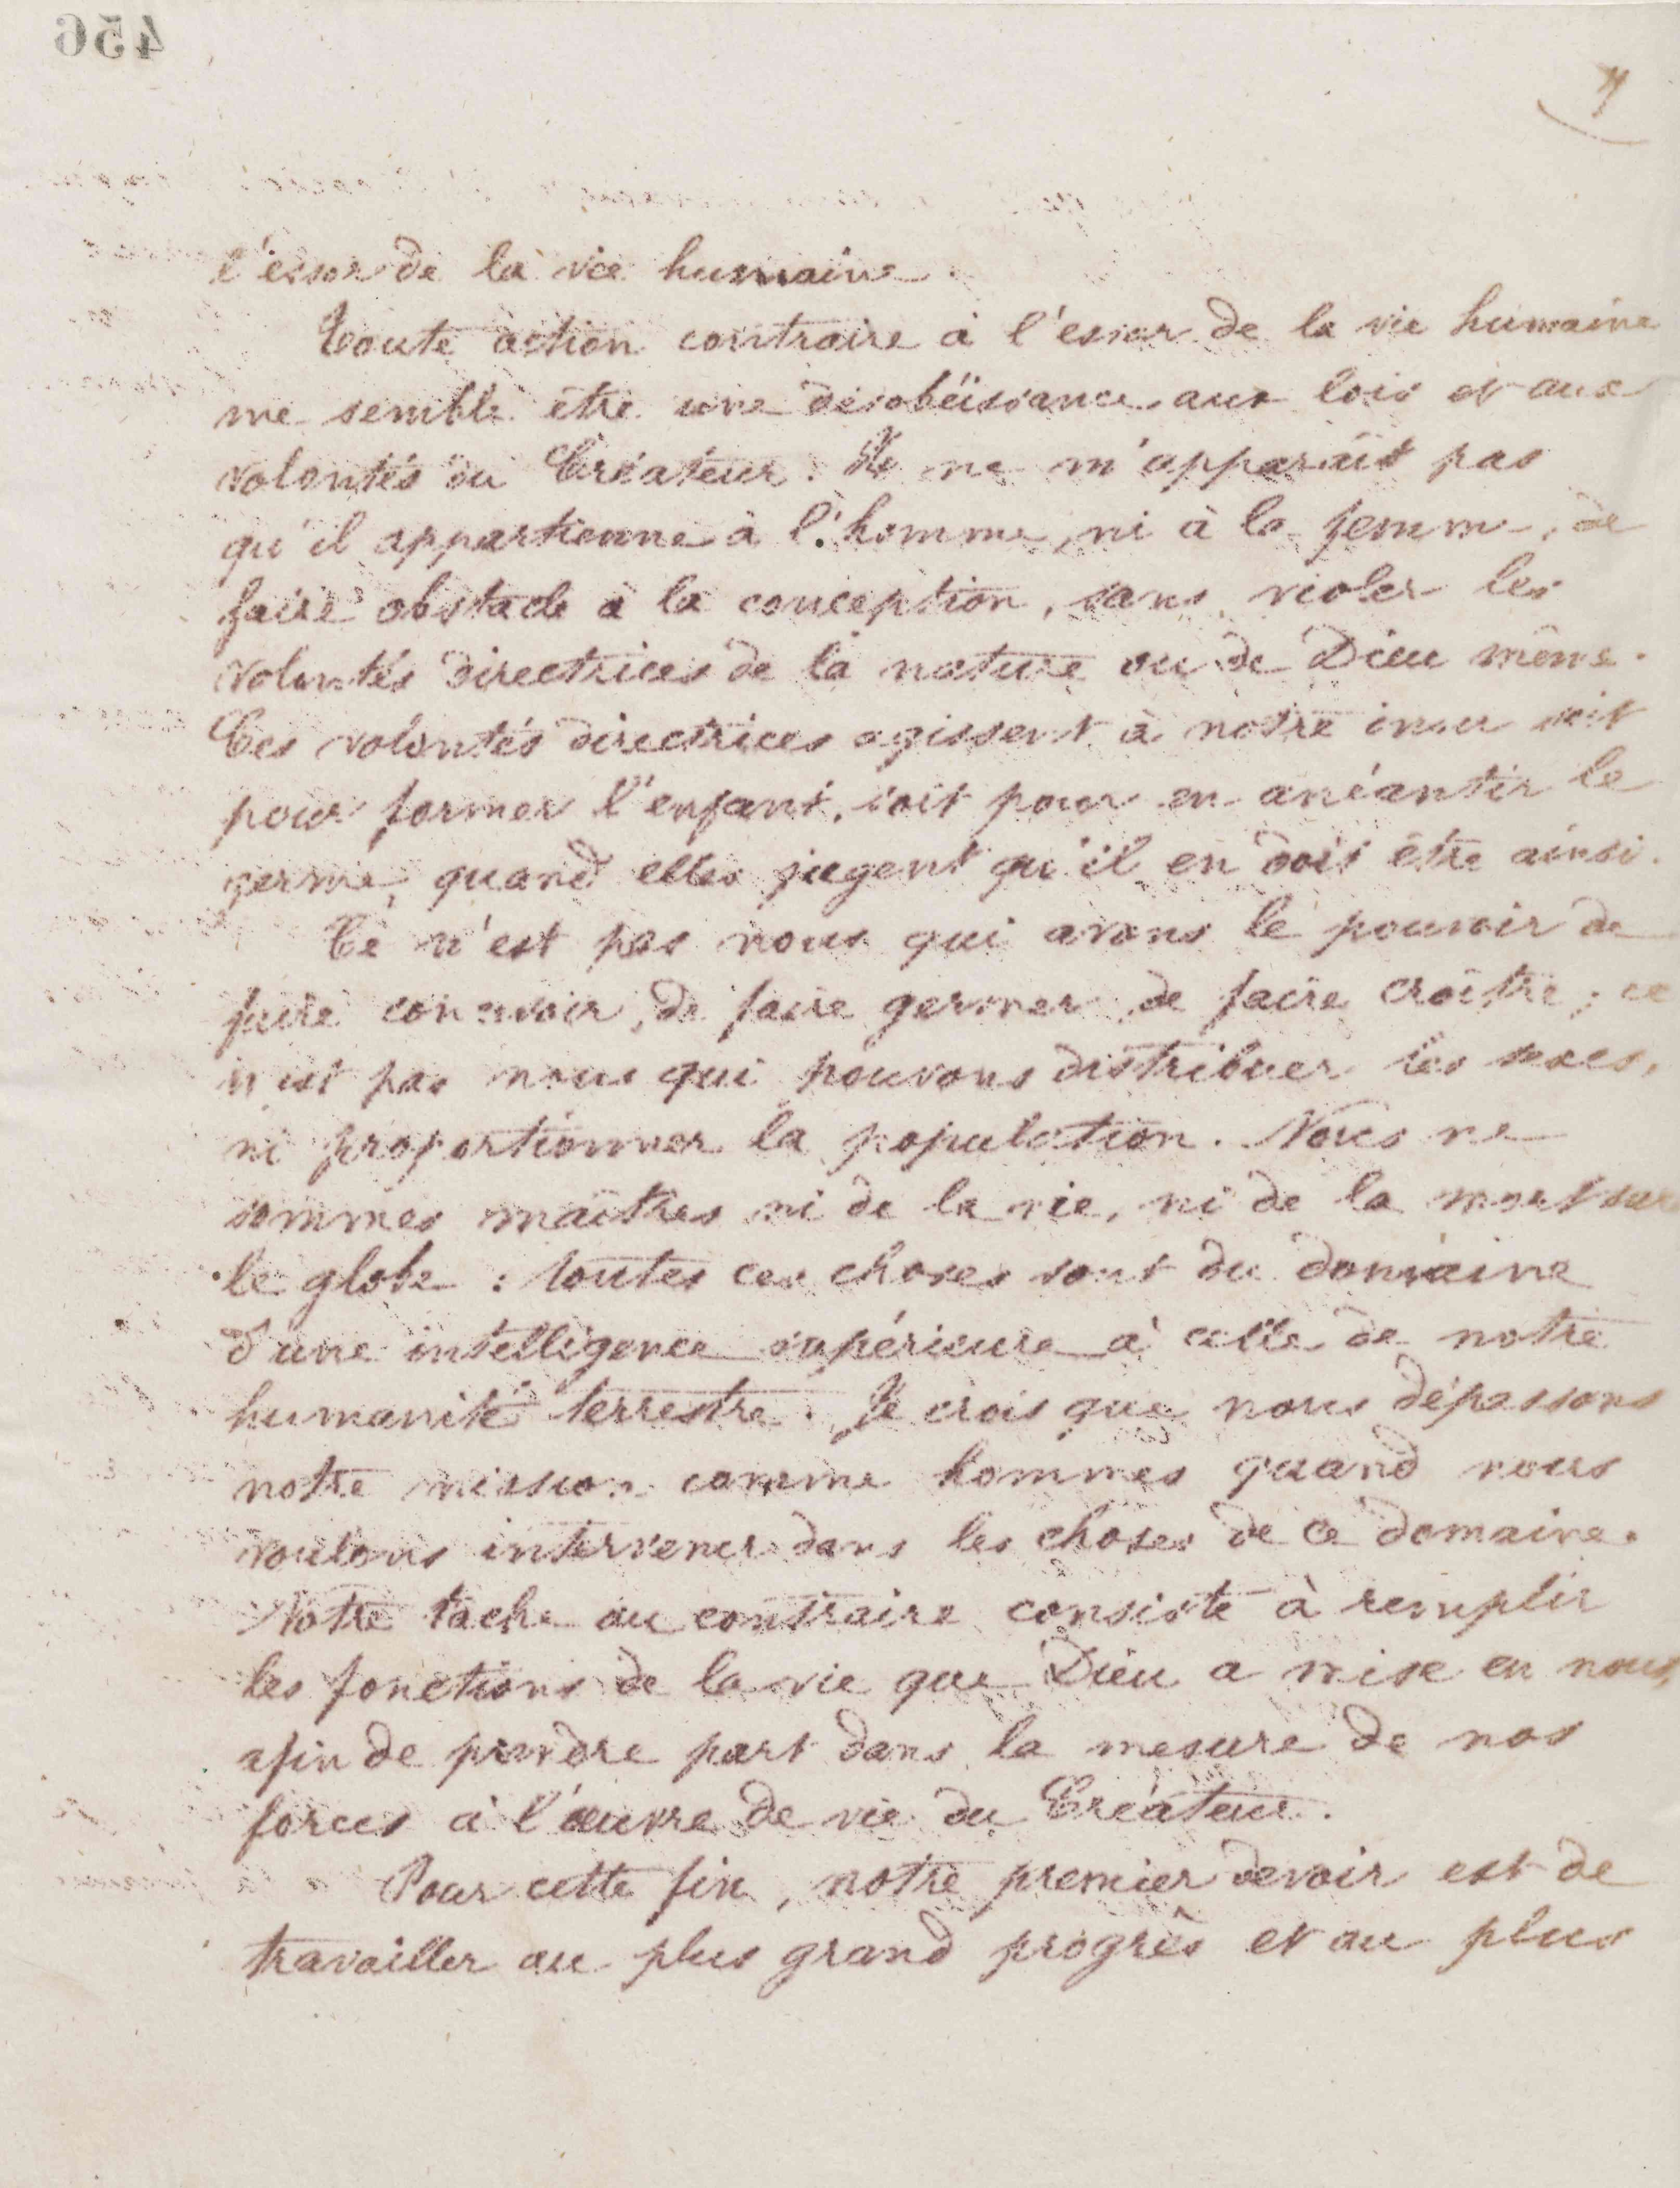 456
l'essor de la vie humaine.
Toute action contraire à l'essor de la vie humaine
me semble être une désobéissance aux lois et aux
volontés du Créateur. Il ne m'apparaît pas
qu'il appartienne à l'homme, ni à la femme, de
faire obstacle à la conception, sans violer les
volontés directrices de la nature ou de Dieu même.
Ces volontés directrices agissent à notre insu soit
pour former l'enfant, soit pour en anéantir le
germe, quand elles jugent qu'il en doit être ainsi.
Ce n'est pas nous qui avons le pouvoir de
faire concevoir, de faire germer, de faire croître ; ce
n'est pas nous qui pouvons distribuer les sexes,
ni proportionner la population. Nous ne
sommes maîtres ni de la vie, ni de la mort sur
le globe : toutes ces choses sont du domaine
d'une intelligence supérieure à celle de notre
humanité terrestre. Je crois que nous dépassons
notre mission comme hommes quand nous
voulons intervenir dans les choses de ce domaine.
Notre tache au contraire consiste à remplir
les fonctions de la vie que Dieu a mise en nous,
afin de prendre part dans la mesure de nos
forces à l'œuvre de vie du Créateur.
Pour cette fin, notre premier devoir est de
travailler au plus grand progrès et au plus